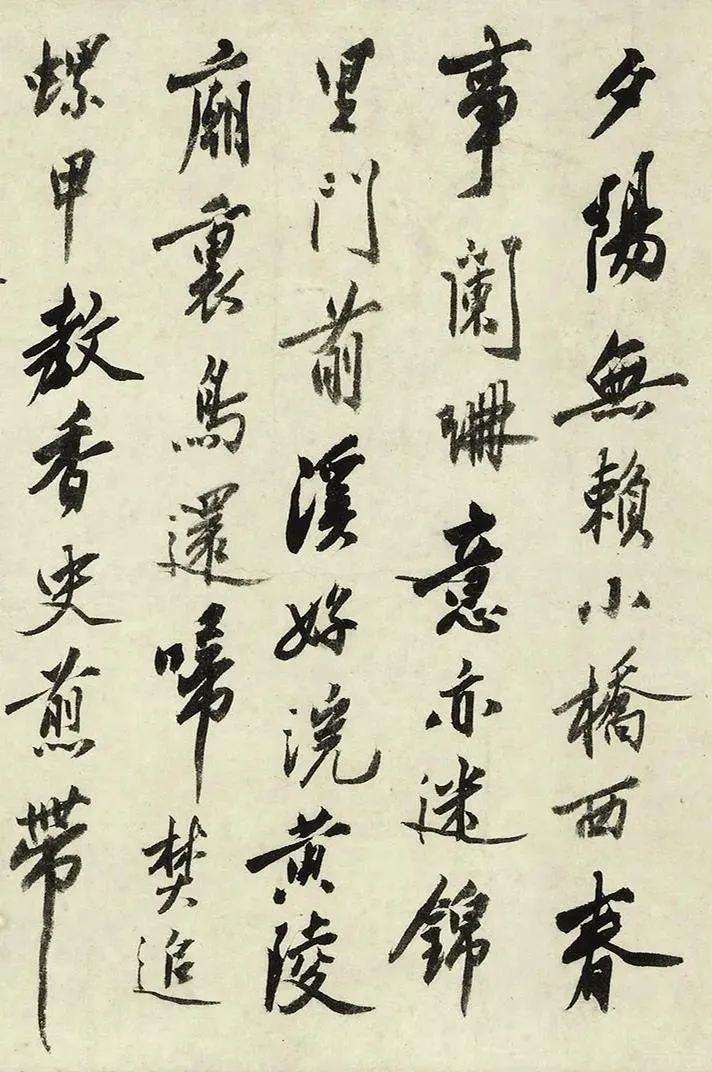 夕陽無賴小橋西春
事闌珊意亦迷錦
里門前溪好浣黃陵
廟裏鳥還啼焚追
螺甲教香史煎帶